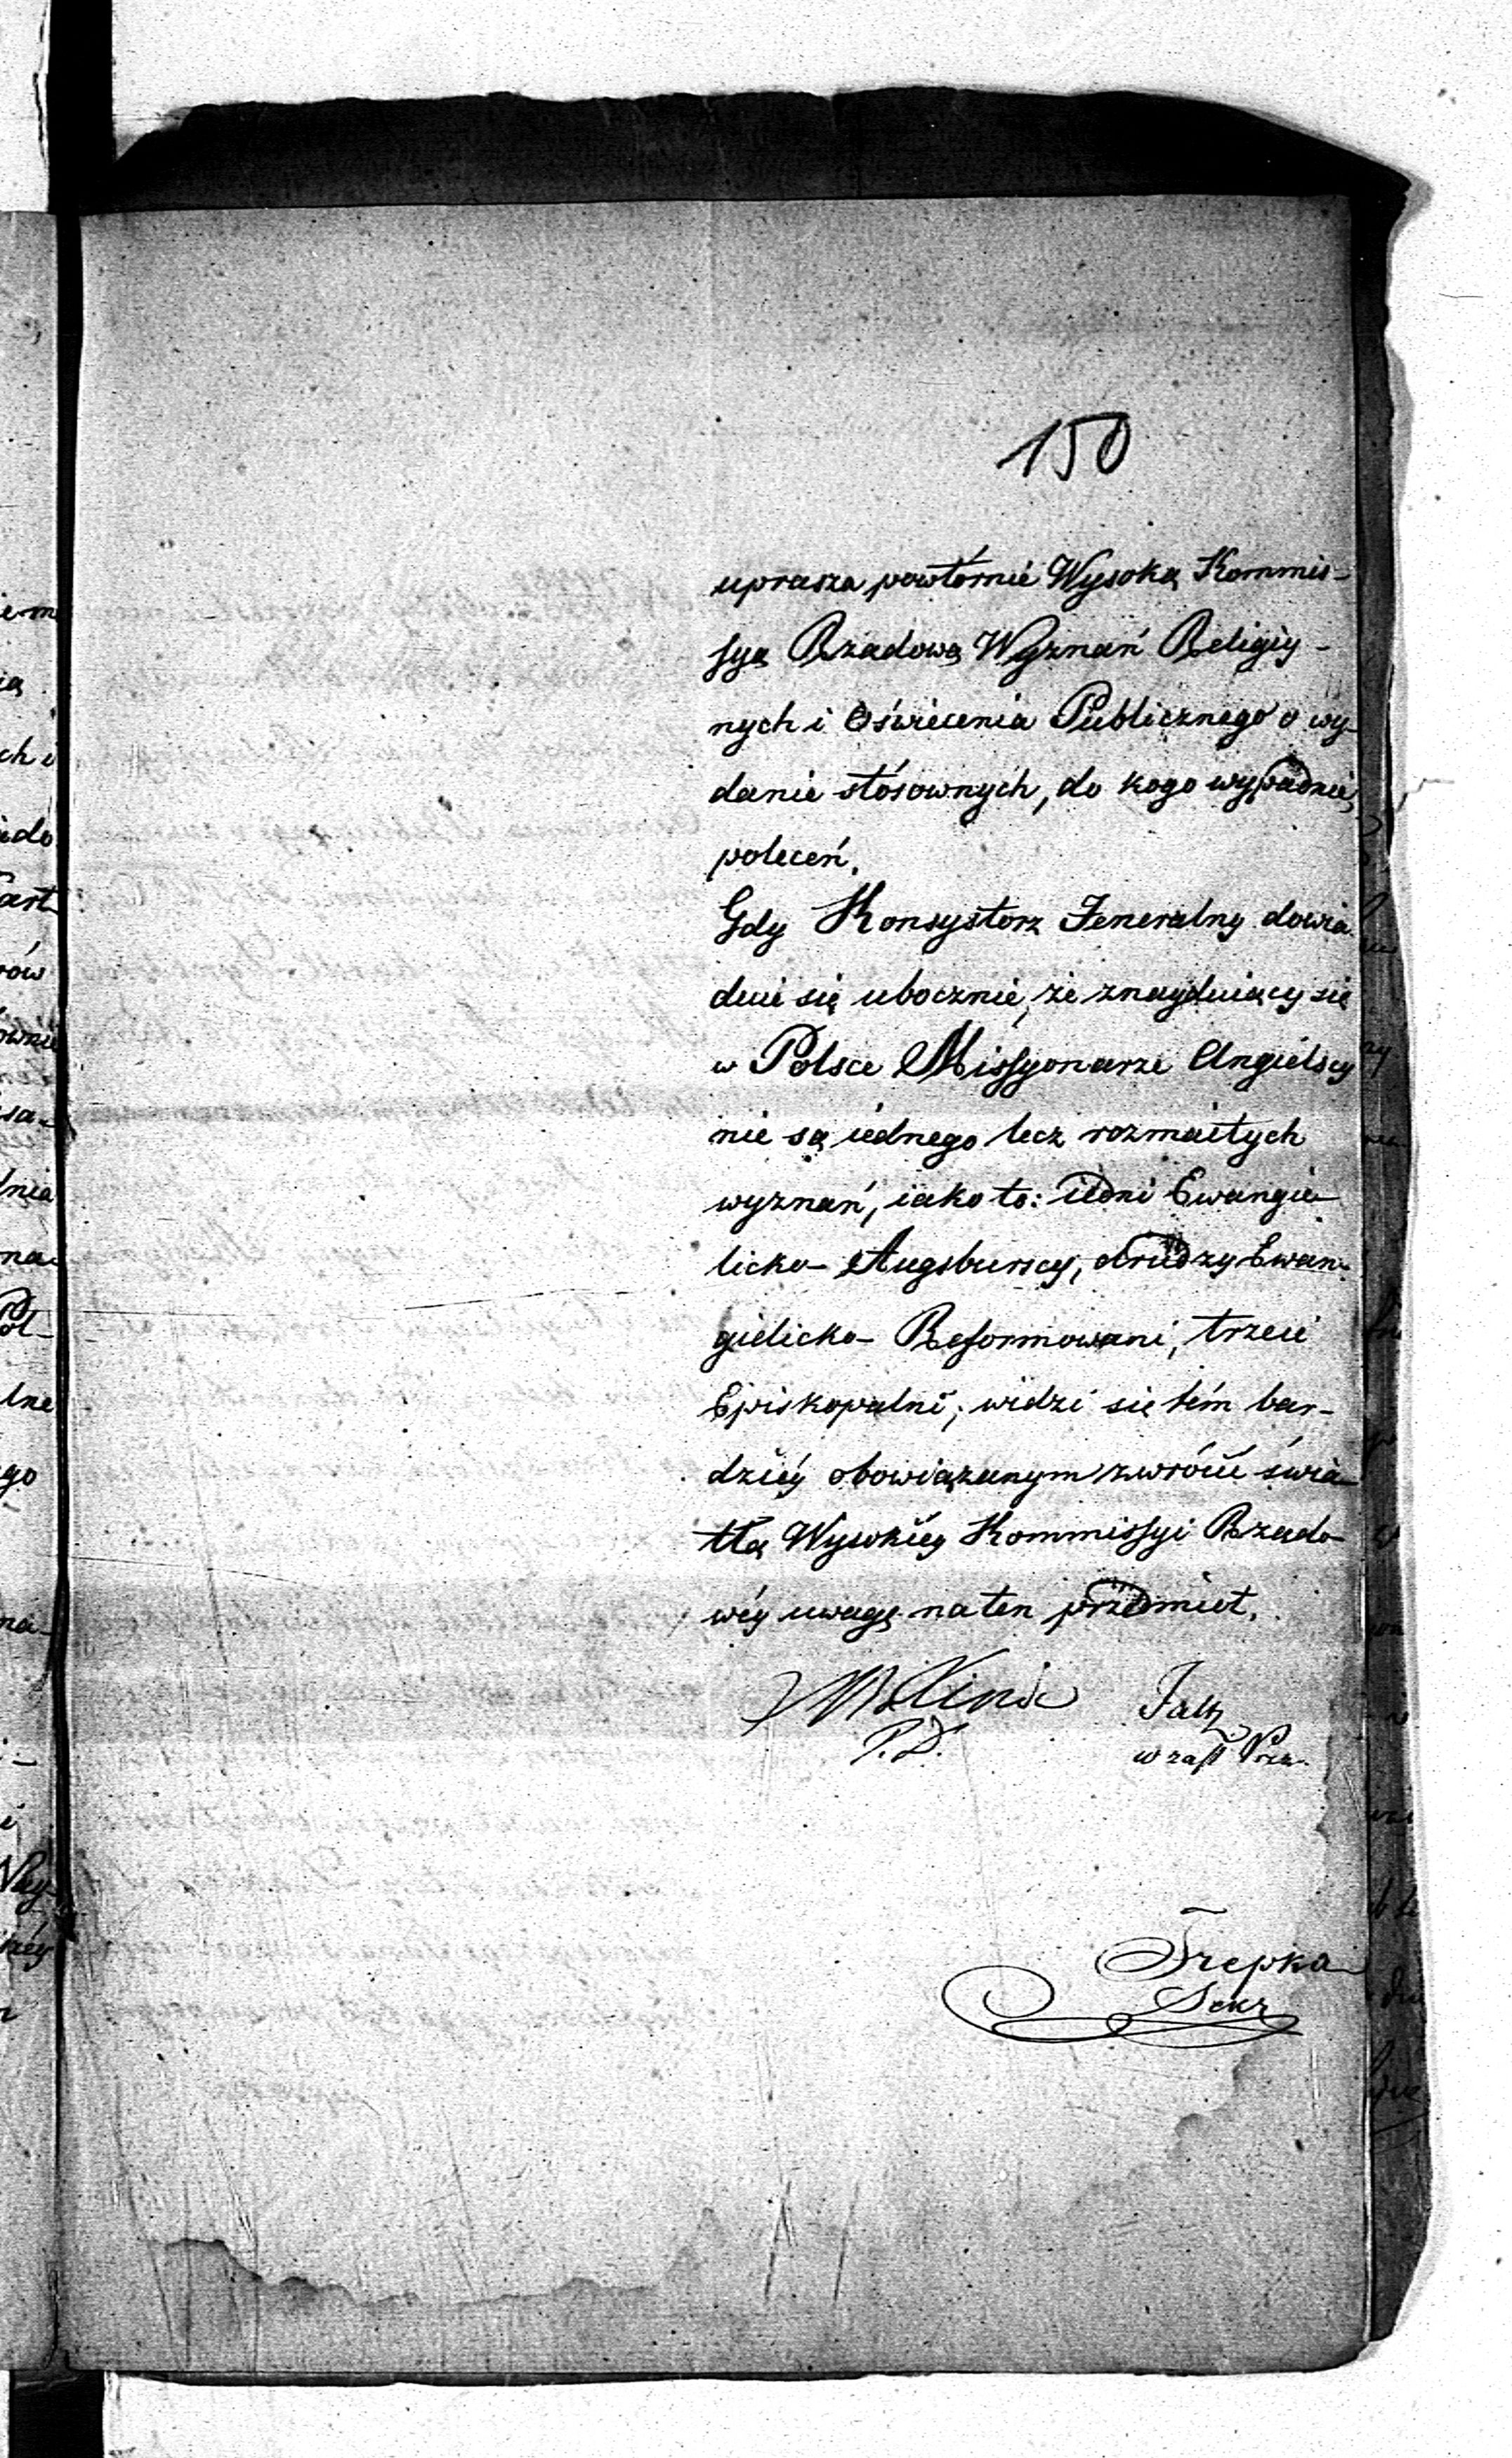 150
uprasza powtórnie Wysoką Kommis-
syą Rządową Wyznań Religiy-
nych i Oświecenia Publicznego o wy-
danie stósownych, do kogo wypadnie,
poleceń.
Gdy Konsystorz Jeneralny dowia
duie się ubocznie, że znayduiący się
w Polsce Missyonarze Angielscy
nie są iednego lecz rozmaitych
wyznań, iako to: iedni Ewangie-
licko-Augsburscy, drudzy Ewan-
gielicko-Reformowani, trzeci
Episkopalni; widzi się tém bar-
dziéy obowiązanym zwrócić świa-
tłą Wysokiéy Kommissyi Rządo-
wéy uwagę na ten przedmiot.
P.D.
w zast Prez.
Trepka
Sekr